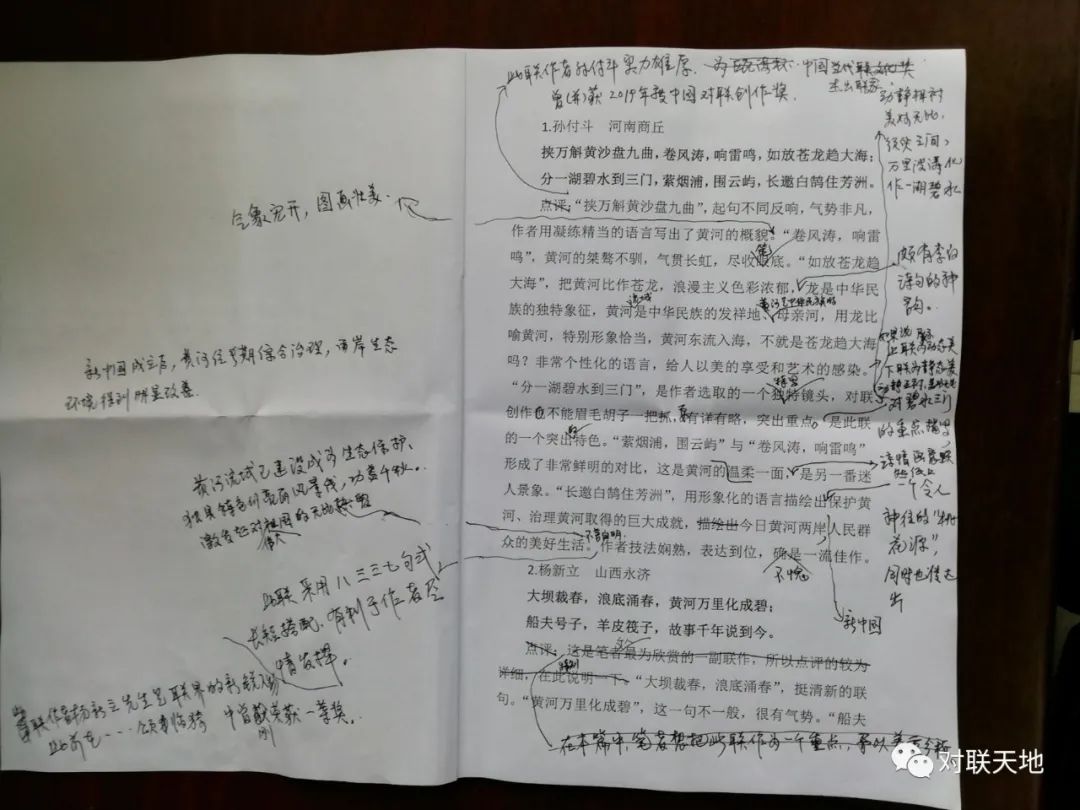 此联作者孙付斗实力雄厚。为中国当代联文化奖
杰出联家
曾(并)获2019年度中国对联创作奖。
1.孙付斗 河南商丘
挟万斛黄沙盘九曲，卷风涛，响雷鸣，如放苍龙趋大海；
分一湖碧水到三门，萦烟浦，围云屿，长邀白鹄住芳洲。
点评：“挟万斛黄沙盘九曲”，起句不同反响，气势非凡，
作者用凝练精当的语言写出了黄河的概貌。“卷风涛，响雷
鸣”，黄河的桀骜不驯，气贯长虹，尽收眼底。“如放苍龙趋
大海”，把黄河比作苍龙，浪漫主义色彩浓郁，龙是中华民
族的独特象征，黄河是中华民族的发祥地、母亲河，用龙比
喻黄河，特别形象恰当，黄河东流入海，不就是苍龙趋大海
吗？非常个性化的语言，给人以美的享受和艺术的感染。
“分一湖碧水到三门”，是作者选取的一个独特镜头，对联
创作也不能眉毛胡子一把抓，有详有略，突出重点，是此联
的一个突出特色。“萦烟浦，围云屿”与“卷风涛，响雷鸣”
形成了非常鲜明的对比，这是黄河的温柔一面，是另一番迷
人景象。“长邀白鹄住芳洲”，用形象化的语言描绘出保护黄
河、治理黄河取得的巨大成就，描绘出今日黄河两岸人民群
众的美好生活。作者技法娴熟，表达到位，确是一流佳作。
不愧
2.杨新立 山西永济
大坝裁春，浪底涌春，黄河万里化成碧；
船夫号子，羊皮筏子，故事千年说到今。
点评：这是笔者最为欣赏的一副联作，所以点评的较为
详细，在此说明一下。“大坝裁春，浪底涌春”，挺清新的联
句。“黄河万里化成碧”，这一句不一般，很有气势。“船夫
在本篇中，笔者想把此联作为一个重点，予以
气象宏开，图画壮美。
新中国成立后，黄河经早期综合治理，两岸生态
环境得到明显改善。
黄河流域已建设成为生态保护、
独具特色的亮丽风景线，功在千秋。
激发起对祖国的无比
此联采用八三三七句式
长短搭配，有利于作者尽
情发挥。
联作者杨新立先生是联界的新锐
中曾获一等奖。
动静相衬
美妙无比，
须臾之间，
万里波涛化
作一湖碧水
颇有李白
诗句的神
韵。
如果说
上联为动态美
下联为静态美
对碧水三门
的重点描写
诗情画意跃
然纸上
一个令人
神往的“桃
花源”，
同时也传达
出
新中国
对联天地